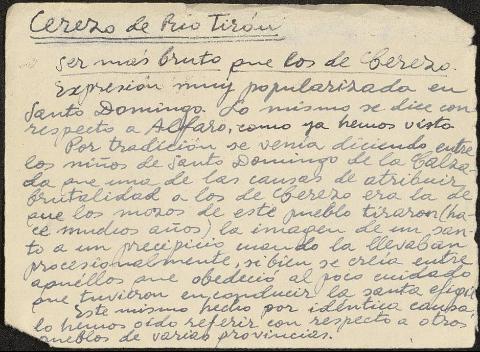 Cerezo de Río Tirón
Ser más bruto que los de Cerezo.
Expresión muy popularizada en
Santo Domingo. Lo mismo se dice con
respecto a Alfaro, como ya hemos visto
Por tradición se venía diciendo entre
los niños de Santo Domingo de la Calza-
da que una de las causas de atribuir
brutalidad a los de Cerezo era la de
que los mozos de este pueblo tiraron (ha-
ce muchos años) la imagen de un san-
to a un precipicio cuando la llevaban
procesionalmente, si bien se creía entre
aquéllos que obedeció al poco cuidado
que tuvieron en conducir la santa efigie
Este mismo hecho por idéntica causa,
lo hemos oído referir con respecto a otros
pueblos de varias provincias.